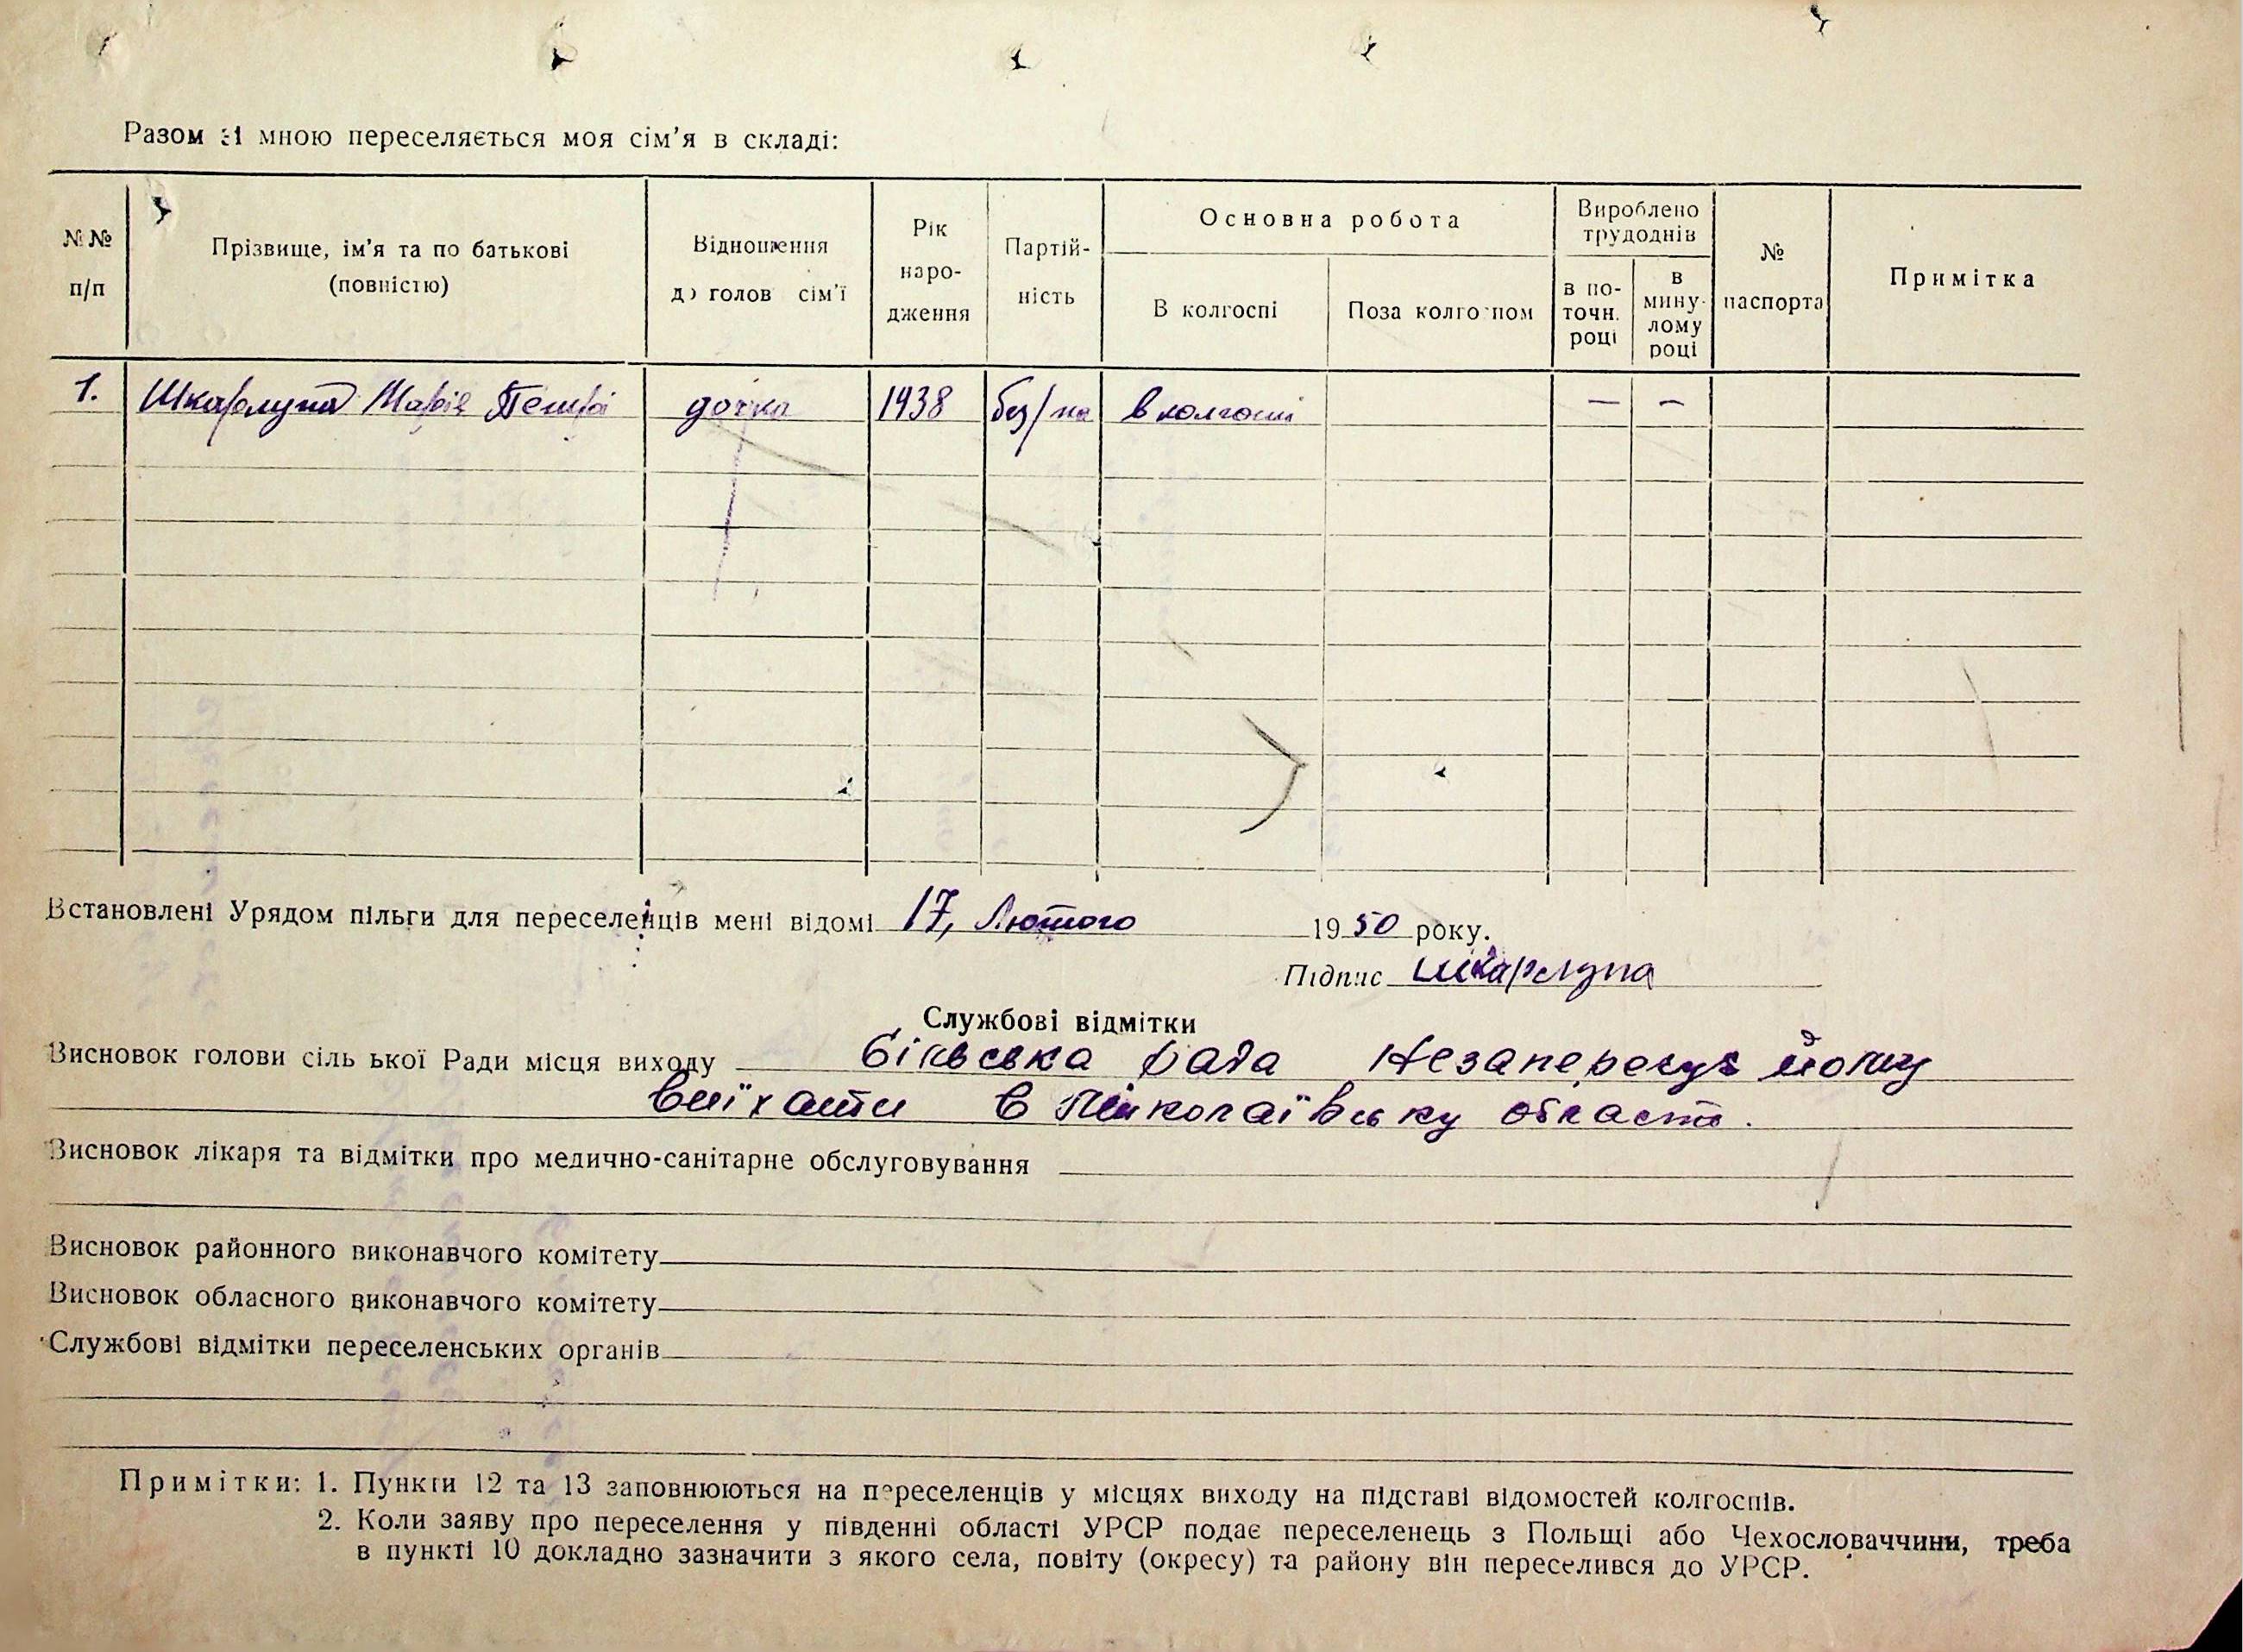 Разом зі мною переселяється моя сім'я в складі:
№№ п/п
Прізвище, ім'я та по батькові (повністю)
Відношення до голов сім'ї
Рік народження
Партійність
Основна робота
В колгоспі
Поза колгоспом
Вироблено трудоднів
в поточн. році
в минулому році
№ паспорта
Примітка
1. Шкарлупа Марія Петрі дочка 1938 без/па в колгоспі — —
Встановлені Урядом пільги для переселенців мені відомі 17, Лютого 1950 року.
Підпис Шкарлупа
Службові відмітки
Висновок голови сільської Ради місця виходу рада Незаперечує йому
виїхати в Миколаївську область.
Висновок лікаря та відмітки про медично-санітарне обслуговування
Висновок районного виконавчого комітету
Висновок обласного виконавчого комітету
Службові відмітки переселенських органів
Примітки: 1. Пункти 12 та 13 заповнюються на переселенців у місцях виходу на підставі відомостей колгоспів.
2. Коли заяву про переселення у південні області УРСР подає переселенець з Польщі або Чехословаччини, треба
в пункті 10 докладно зазначити з якого села, повіту (окресу) та району він переселився до УРСР.